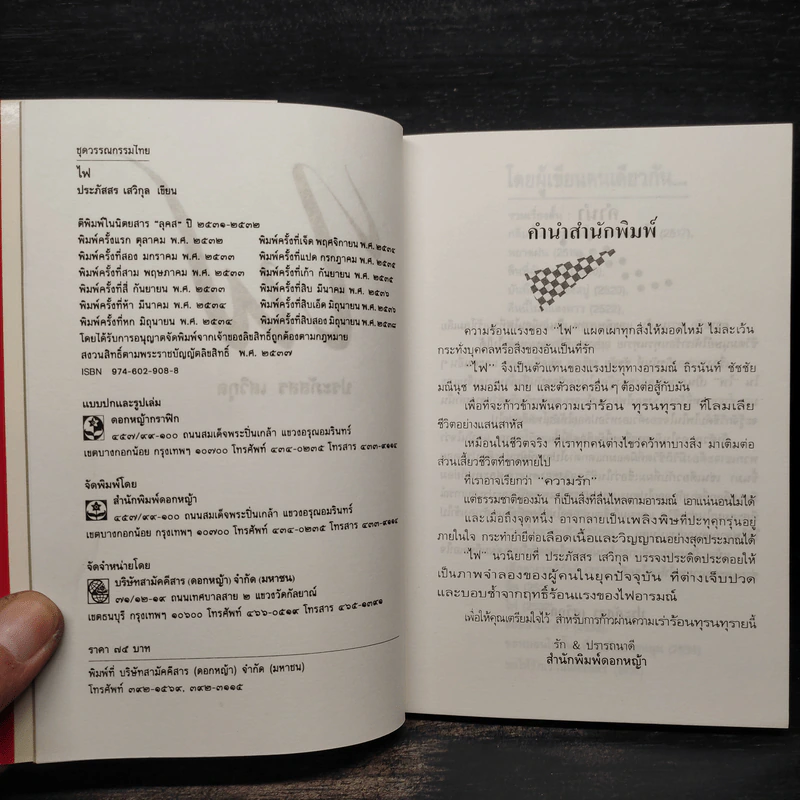 ชุดวรรณกรรมไทย
ไฟ
ประภัสสร เสวิกุล เขียน
ตีพิมพ์ในนิตยสาร "ลุคส์" ปี ๒๕๓๑-๒๕๓๒
พิมพ์ครั้งแรก ตุลาคม พ.ศ. ๒๕๓๒ พิมพ์ครั้งที่เจ็ด พฤศจิกายน พ.ศ. ๒๕๓๔
พิมพ์ครั้งที่สอง มกราคม พ.ศ. ๒๕๓๓ พิมพ์ครั้งที่แปด กรกฎาคม พ.ศ. ๒๕๓๕
พิมพ์ครั้งที่สาม พฤษภาคม พ.ศ. ๒๕๓๓ พิมพ์ครั้งที่เก้า กันยายน พ.ศ. ๒๕๓๕
พิมพ์ครั้งที่สี่ กันยายน พ.ศ. ๒๕๓๓ พิมพ์ครั้งที่สิบ มีนาคม พ.ศ. ๒๕๓๖
พิมพ์ครั้งที่ห้า มีนาคม พ.ศ. ๒๕๓๔ พิมพ์ครั้งที่สิบเอ็ด มิถุนายน พ.ศ. ๒๕๓๖
พิมพ์ครั้งที่หก มิถุนายน พ.ศ. ๒๕๓๔ พิมพ์ครั้งที่สิบสอง มิถุนายน พ.ศ. ๒๕๓๘
โดยได้รับการอนุญาตจัดพิมพ์จากเจ้าของลิขสิทธิ์ถูกต้องตามกฎหมาย
สงวนสิทธิ์ตามพระราชบัญญัติลิขสิทธิ์ พ.ศ. ๒๕๓๗
ISBN 974-602-908-8
แบบปกและรูปเล่ม
ดอกหญ้ากราฟิก
๔๕๗/๙๙-๑๐๐ ถนนสมเด็จพระปิ่นเกล้า แขวงอรุณอมรินทร์
เขตบางกอกน้อย กรุงเทพฯ ๑๐๗๐๐ โทรศัพท์ ๔๓๔-๐๒๓๕ โทรสาร ๔๓๓-๙๑๑๔
จัดพิมพ์โดย
สำนักพิมพ์ดอกหญ้า
๔๕๗/๙๙-๑๐๐ ถนนสมเด็จพระปิ่นเกล้า แขวงอรุณอมรินทร์
เขตบางกอกน้อย กรุงเทพฯ ๑๐๗๐๐ โทรศัพท์ ๔๓๔-๐๒๓๕ โทรสาร ๔๓๓-๙๑๑๔
จัดจำหน่ายโดย
บริษัทสามัคคีสาร (ดอกหญ้า) จำกัด (มหาชน)
๗๑/๑๒-๑๙ ถนนเทศบาลสาย ๒ แขวงวัดกัลยาณ์
เขตธนบุรี กรุงเทพฯ ๑๐๖๐๐ โทรศัพท์ ๔๖๖-๐๕๑๙ โทรสาร ๔๖๕-๑๓๙๑
ราคา ๗๕ บาท
พิมพ์ที่ บริษัทสามัคคีสาร (ดอกหญ้า) จำกัด (มหาชน)
โทรศัพท์ ๓๙๒-๑๕๖๙, ๓๙๒-๓๑๑๕
คำนำสำนักพิมพ์
ความร้อนแรงของ "ไฟ" แผดเผาทุกสิ่งให้มอดไหม้ ไม่ละเว้น
กระทั่งบุคคลหรือสิ่งของอันเป็นที่รัก
"ไฟ" จึงเป็นตัวแทนของแรงปะทุทางอารมณ์ ถิรนันท์ ชัชชัย
มณีนุช หมอมีน มาย และตัวละครอื่น ๆ ต้องต่อสู้กับมัน
เพื่อที่จะก้าวข้ามพ้นความเร่าร้อน ทุรนทุราย ที่โลมเลีย
ชีวิตอย่างแสนสาหัส
เหมือนในชีวิตจริง ที่เราทุกคนต่างไขว่คว้าหาบางสิ่ง มาเติมต่อ
ส่วนเสี้ยวชีวิตที่ขาดหายไป
ที่เราอาจเรียกว่า "ความรัก"
แต่ธรรมชาติของมัน ก็เป็นสิ่งที่ลื่นไหลตามอารมณ์ เอาแน่นอนไม่ได้
และเมื่อถึงจุดหนึ่ง อาจกลายเป็นเพลิงพิษที่ปะทุคุกรุ่นอยู่
ภายในใจ กระทำย่ำยีต่อเลือดเนื้อและวิญญาณอย่างสุดประมาณได้
"ไฟ" นวนิยายที่ ประภัสสร เสวิกุล บรรจงประดิดประดอยให้
เป็นภาพจำลองของผู้คนในยุคปัจจุบัน ที่ต่างเจ็บปวด
และบอบช้ำจากฤทธิ์ร้อนแรงของไฟอารมณ์
เพื่อให้คุณเตรียมใจไว้ สำหรับการก้าวผ่านความเร่าร้อนทุรนทุรายนี้
รัก & ปรารถนาดี
สำนักพิมพ์ดอกหญ้า